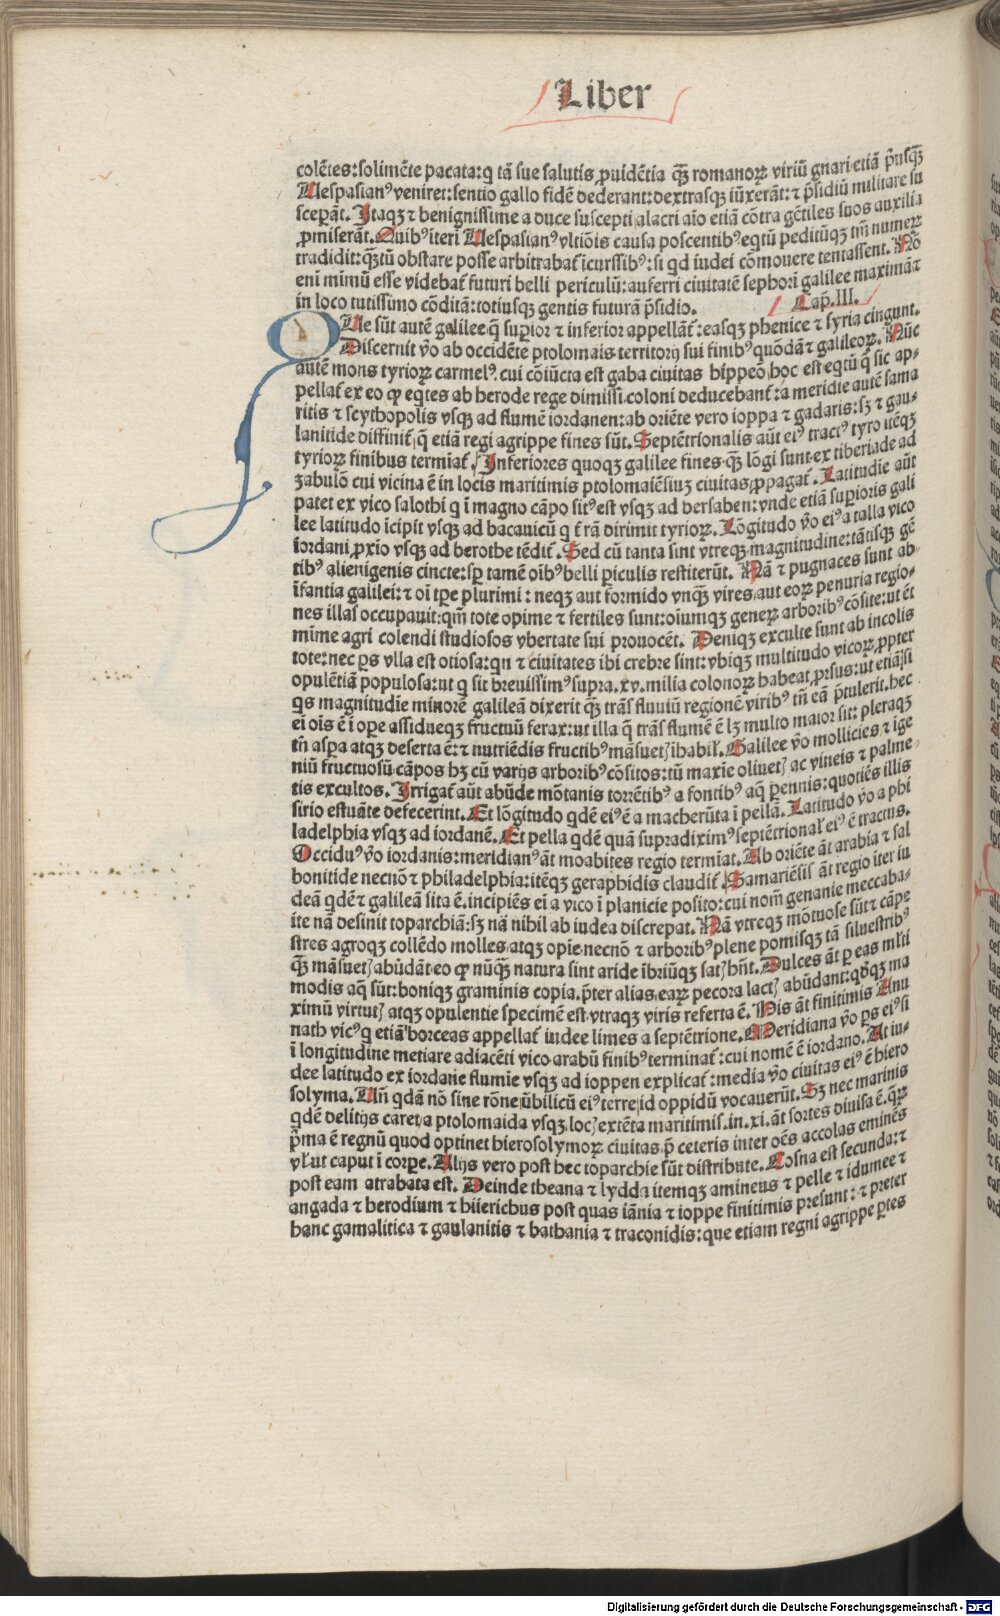 Liber
colētes:solimēte pacata:q tā sue salutis ꝓuidētia qꝫ romanoꝝ viriū gnari etiā pͥusqꝫ
Uespasianꝰ veniret:sentio gallo fidē dederant:dextrasqꝫ iūxerāt:⁊ p̄sidiū militare su
sceperāt. Itaqꝫ ⁊ benignissime a duce suscepti alacri aīo etiā cōtra gētiles suos auxilia
ꝓmiserāt. Quibꝰ iteri Uespasianꝰ vltiōis causa poscentibꝰ eqtū peditūqꝫ tm̄ numerꝝ
tradidit:qꝫtū obstare posse arbitrabat̄ icurssibꝰ:si qd iudei cōmouere tentassent. Nō
eni mimū esse videbat̄ futuri belli periculū:auferri ciuitatē sephori galilee maximā ⁊
in loco tutissimo cōditā:totiusqꝫ gentis futurā p̄sidio. Cap̄. III.
Ue sūt autē galilee q̄ supior ⁊ inferior appellāt̄:easqꝫ phenice ⁊ syria cingunt.
Discernit v̄o ab occidēte ptolomais territorij sui finibꝰ quōdā ⁊ galileoꝝ. Nūc
autē mons tyrioꝝ carmelꝰ. cui cōiūcta est gaba ciuitas hippeō hoc est eqtū q̄ sic ap-
pellat̄ ex eo ꝙ eqtes ab herode rege dimissi coloni deducebant̄:a meridie autē sama
ritis ⁊ scythopolis vsqꝫ ad flumē iordanen:ab oriēte vero ioppa ⁊ gadaris:sꝫ ⁊ gau-
lanitide diffinit̄ q̄ etiā regi agrippe fines sūt. Septētrionalis aūt eiꝰ tractꝰ tyro itēqꝫ
tyrioꝝ finibus termīat̄. Inferiores quoqꝫ galilee fines qꝫ lōgi sunt ex tiberiade ad
zabulō cui vicina ē in locis maritimis ptolomaiēsiuꝫ ciuitas ꝓpagat̄. Latitudie aūt
patet ex vico salothi q ī magno cāpo sitꝰ est vsqꝫ ad bersaben:vnde etiā supioris gali
lee latitudo īcipit vsqꝫ ad bacauicū q t̄rā dirimit tyrioꝝ. Lōgitudo v̄o eiꝰ a talla vico
iordani ꝓxio vsqꝫ ad berothe tēdit̄. Sed cū tanta sint vtreqꝫ magnitudine:tātisqꝫ gē
tibꝰ alienigenis cincte:sp tamē oībꝰ belli piculis restiterūt. Nā ⁊ pugnaces sunt ab
īfantia galilei:⁊ oī tpe plurimi: neqꝫ aut formido vnqꝫ vires aut eoꝝ penuria regio-
nes illas occupauit:qm̄ tote opime ⁊ fertiles sunt:oiumqꝫ generꝝ arboribꝰ cōsite:ut ēt
mīme agri colendi studiosos vbertate sui prouocēt. Deniqꝫ exculte sunt ab incolis
tote:nec ps vlla est otiosa:qn ⁊ ciuitates ibi crebre sint:vbiqꝫ multitudo vicoꝝ ꝓpter
opulētiā populosa:ut q sit breuissimꝰ supra. xv. milia colonoꝝ habeat ꝓrsus:ut etiāsi
qs magnitudie minorē galileā dixerit qꝫ trās fluuiū regionē viribꝰ tn̄ eā p̄tulerit. hec
ei oīs ē ī ope assidueqꝫ fructuū ferax:ut illa q̄ trās flumē ē lꝫ multo maior sit: pleraqꝫ
tn̄ aspa atqꝫ deserta ē:⁊ nutriēdis fructibꝰ māsuetꝭ ihabil. Galilee v̄o mollicies ⁊ ige
niū fructuosū cāpos hꝫ cū varijs arboribꝰ cōsitos:tū maxīe oliuetꝭ ac vineis ⁊ palme
tis excultos. Irrigat̄ aūt abūde mōtanis torrētibꝰ a fontibꝰ aq̄ pennis:quotiēs illis
sirio estuāte defecerint. Et lōgitudo qdē eiꝰ ē a macherūta ī pellā. Latitudo v̄o a phi
ladelphia vsqꝫ ad iordanē. Et pella qdē quā supradiximꝰ septētrional eiꝰ ē tractus.
Occiduꝰ v̄o iordanis:meridianꝰ āt moabites regio termīat. Ab oriēte āt arabia ⁊ sal
bonitide necnō ⁊ philadelphia:itēqꝫ geraphidis claudit̄. Samariēsis āt regio iter iu
deā qdē ⁊ galileā sita ē. incipiēs ei a vico ī planicie posito:cui nom̄ genanie meccaba-
ite nā desinit toparchiā:sꝫ nā nihil ab iudea discrepat. Nā vtreqꝫ mōtuose sūt ⁊ cāpe
stres agroqꝫ collēdo molles atqꝫ opie necnō ⁊ arboribꝰ plene pomisqꝫ tā siluestribꝰ
qꝫ māsuetꝭ abūdāt eo ꝙ nūqꝫ natura sint aride ībriūqꝫ satꝭ hn̄t. Dulces āt p eas ml̄ti
modis aq̄ sūt:boniqꝫ graminis copia. p̄ter alias eaꝝ pecora lactꝭ abūdant:qd̄qꝫ ma
ximū virtutꝭ atqꝫ opulentie specimē est vtraqꝫ viris referta ē. His āt finitimis Anu
nath vicꝰ q etiā borceas appellat̄ iudee limes a septētrione. Meridiana v̄o ps eiꝰ si
ī longitudine metiare adiacēti vico arabū finibꝰ terminat̄:cui nomē ē iordano. At iu-
dee latitudo ex iordane flumīe vsqꝫ ad ioppen explicat̄:media v̄o ciuitas eiꝰ ē hiero
solyma. Un̄ qdā nō sine rōne ūbilicū eiꝰ terre id oppidū vocauerūt. Sꝫ nec marinis
qdē delitijs caret a ptolomaida vsqꝫ locꝭ extēta maritimis. in. xi. āt sortes diuisa ē. qꝝ
p̄ma ē regnū quod optinet hierosolymoꝝ ciuitas p̄ ceteris inter oēs accolas eminēs
vl̄ut caput ī corpe. Alijs vero post hec toparchie sūt distribute. Cosna est secunda:⁊
post eam atrabata est. Deinde theana ⁊ lydda itemqꝫ amineus ⁊ pelle ⁊ idumee ⁊
angada ⁊ herodium ⁊ hiierichus post quas iānia ⁊ ioppe finitimis presunt: ⁊ preter
hanc gamalitica ⁊ gaulanitis ⁊ bathania ⁊ traconidis:que etiam regni agrippe ptes
Digitalisierung gefördert durch die Deutsche Forschungsgemeinschaft - DFG